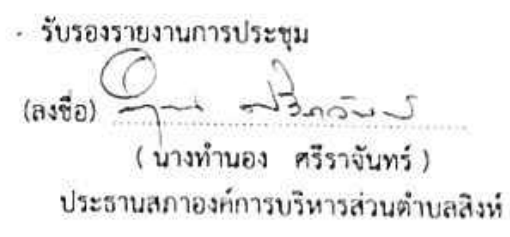 - รับรองรายงานการประชุม
(ลงชื่อ)
( นางทำนอง ศรีราจันทร์ )
ประธานสภาองค์การบริหารส่วนตำบลสิงห์